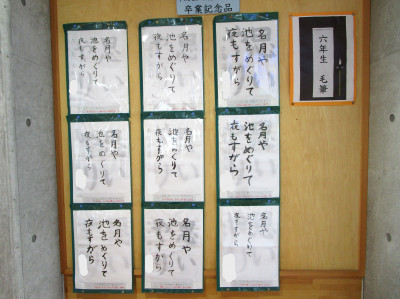 卒業記念品
六年生 毛筆
名月や
池をめぐりて
夜もすがら
名月や
池をめぐりて
夜もすがら
名月や
池をめぐりて
夜もすがら
名月や
池をめぐりて
夜もすがら
名月や
池をめぐりて
夜もすがら
名月や
池をめぐりて
夜もすがら
名月や
池をめぐりて
夜もすがら
名月や
池をめぐりて
夜もすがら
名月や
池をめぐりて
夜もすがら